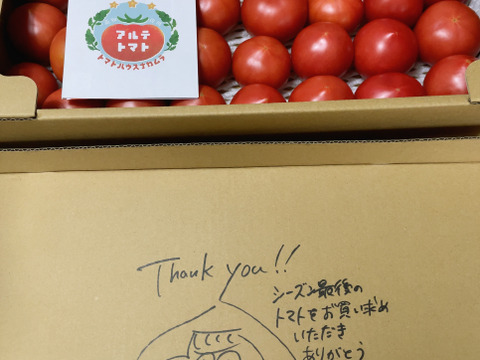 アルテ
トマト
トマトハウスナカムラ
Thank you!!
シーズン最後の
トマトをお買い求め
いただき
ありがとう